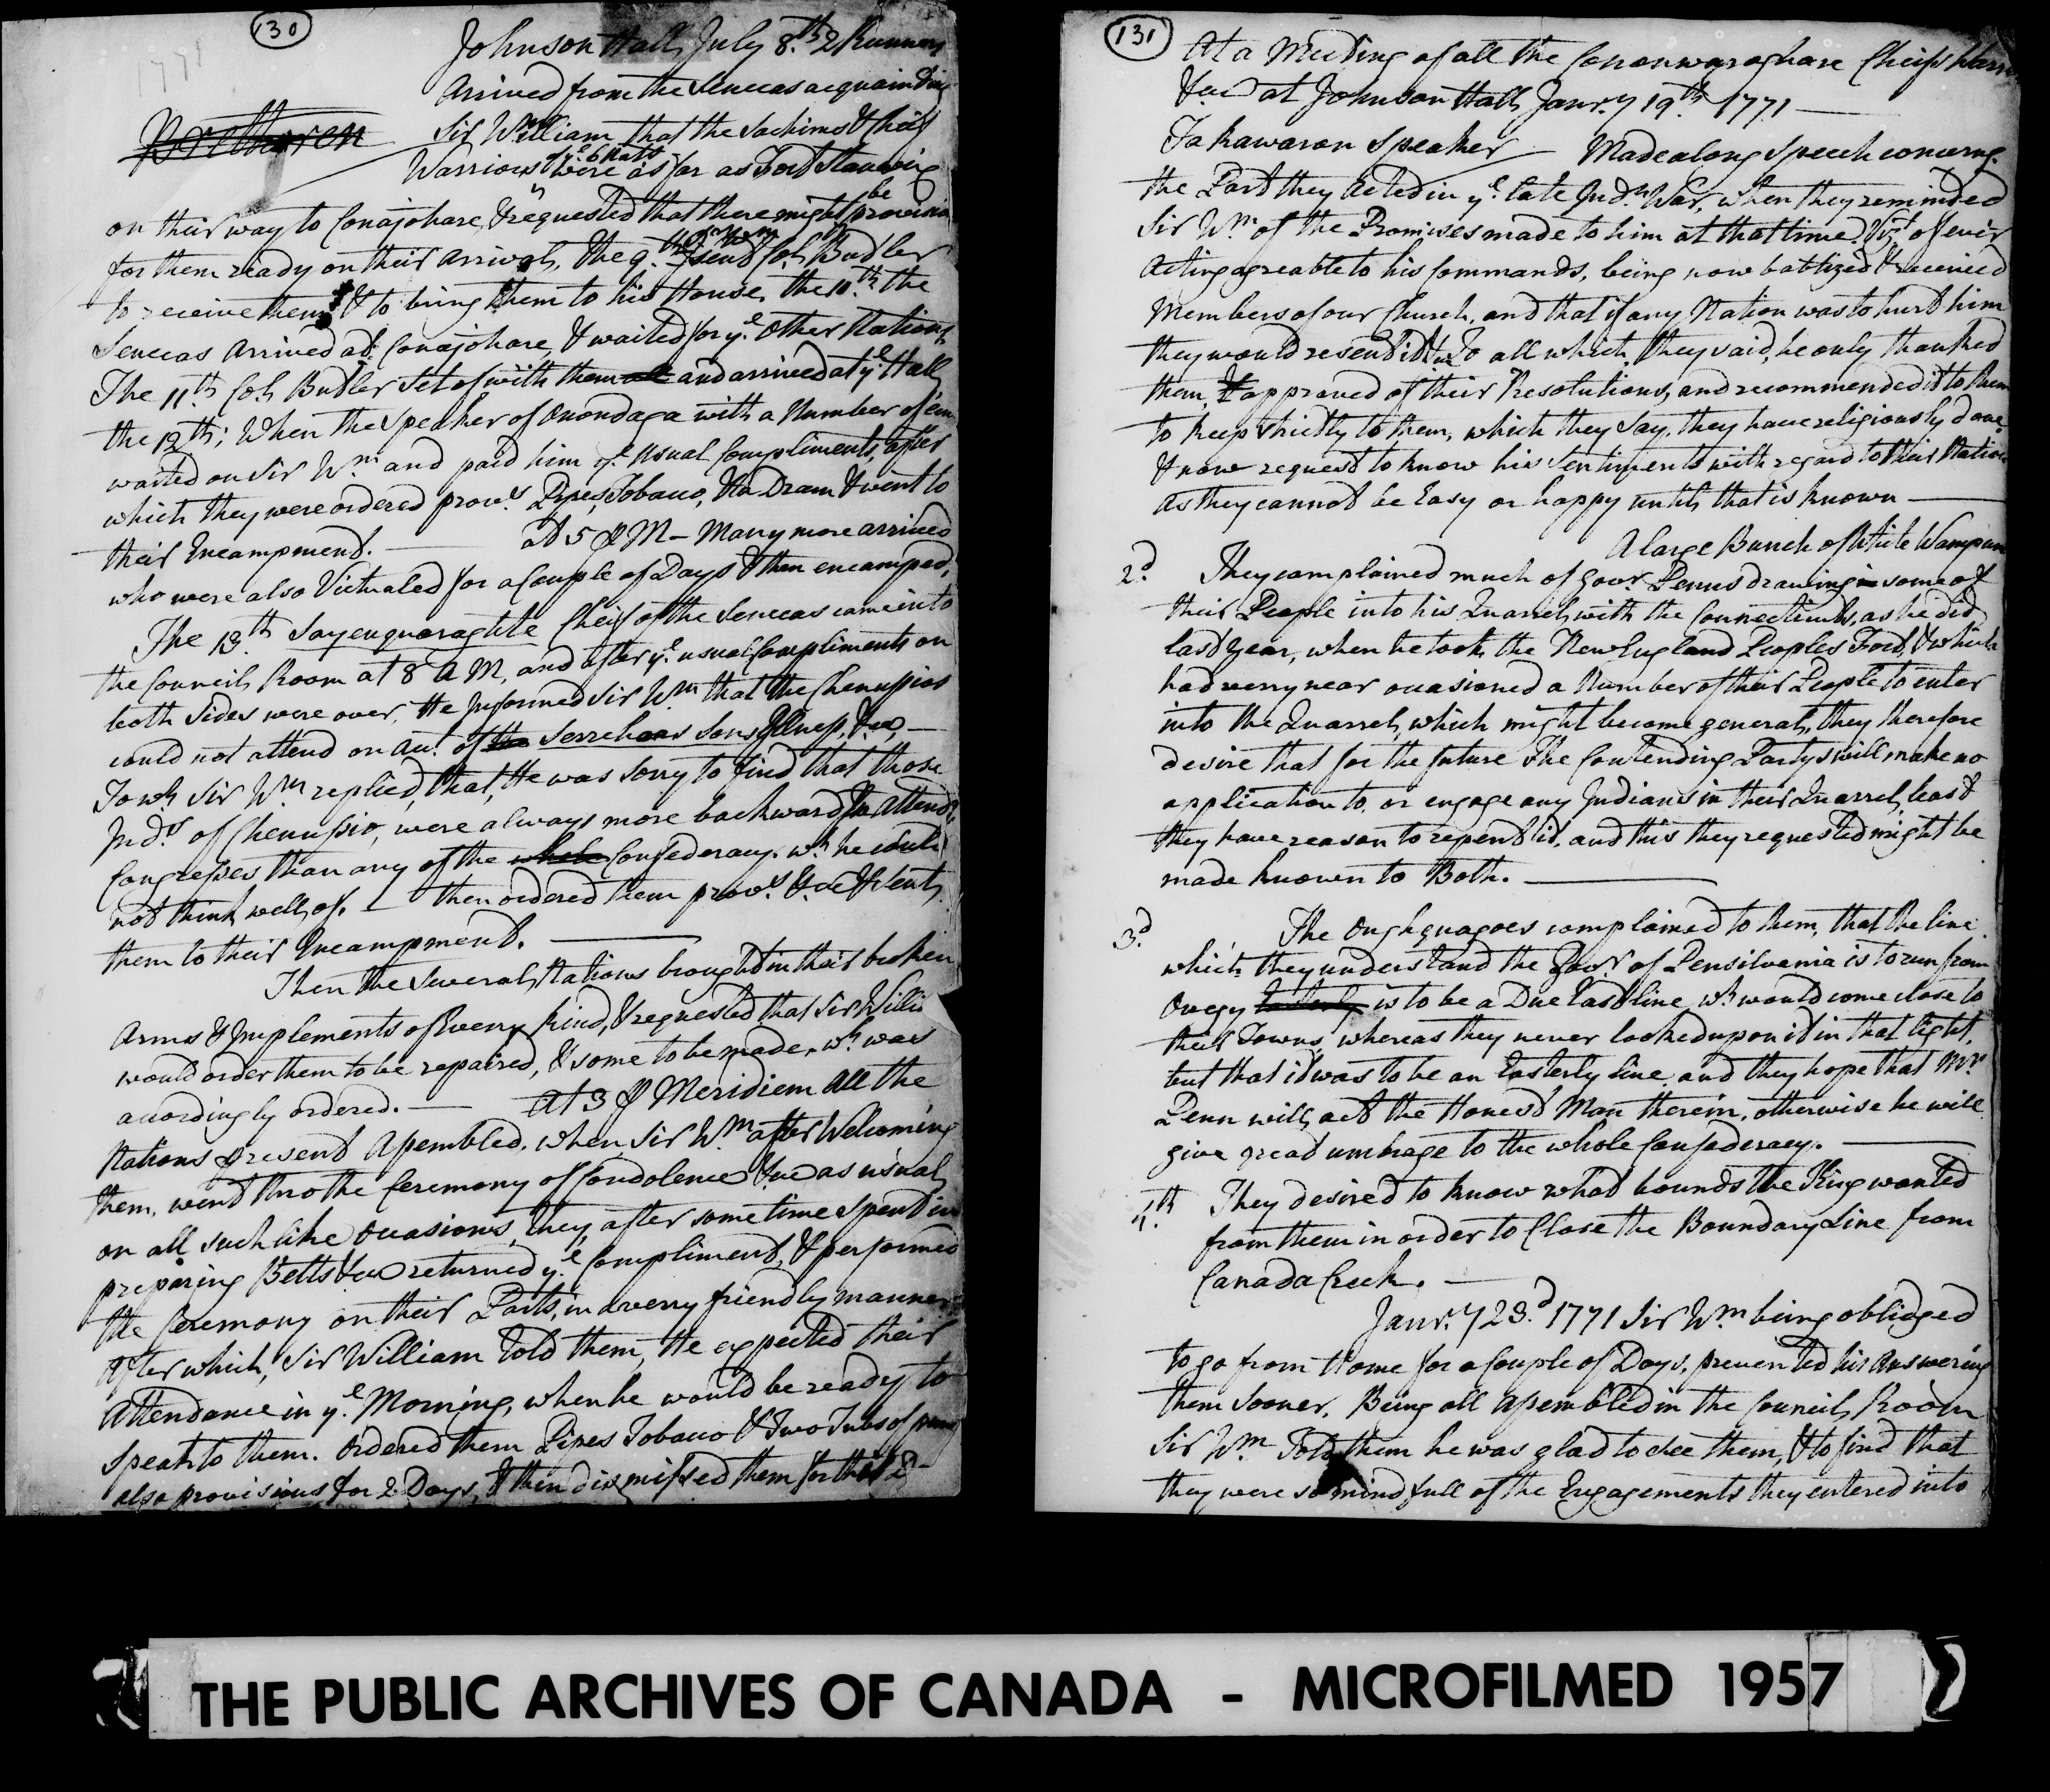 130
Johnson Hall July 8.th 2 Runners
Arrived from the Senecas acquainting
Brethren Sir William that the Sachims & Chiefs
Warriors of ye. 6 Nats were as far as Fort Stanwix
on their way to Conajohare, & requested that there might be provision
for them ready on their Arrival, the 9.th Sir Wm sent Col. Butler
to receive them & to bring them to his House, the 10.th the
Senecas Arrived at Conajohare, & waited for ye. Other Nations,
The 11th Col. Butler Set of with them all and arrived at ye. Hall
the 12th; When the Speaker of Onondaga with a Number of em
waited on Sir Wm. and paid him ye. usual Compliments, after
which they were ordered provs. Pipes, Tobacco, & a Dram & went to
their Encampment. — at 5 P M — Many more arrived
who were also Victualed for a Couple of Days & then encamped,
The 13.th Sayenquaraghta Cheif of the Senecas came into
the Council Room at 8 A M, and after ye. usual Compliments on
both Sides were over, He Informed Sir Wm. that the Chenussios
could not attend on Acct. of the Serrehoas Sons Illness, &ca. —
To wh. Sir Wm. replied, that, He was sorry to find that those
Inds. of Chenussio, were always more backward in attendg.
Congresses than any of the whole Confederacy. wh. he could
not think well of. — then ordered them provs. &ca & sent
them to their Encampment. —
Then the Several Nations brought in their broken
Arms & Implements of Every kind, & requested that Sir Willm
would order them to be repaired, & some to be made, wh. was
accordingly ordered. — At 3 P Meridiem All the
Nations present Assembled. when Sir Wm. after Welcoming
them, went thro the Ceremony of Condolence &ca as usual
on all such like Occasions, they, after some time Spent in
preparing Belts &ca returned ye. Compliment, & performed
the Ceremony on their Parts, in a verry friendly manner.
After which, Sir William Told them, He expected their
Attendance in ye. Morning, when he would be ready to
Speak to them. Ordered them Pipes Tobacco & Two Tubs of punch
also provisions for 2 Days, & then dismissed them for this d
131
At a Meeting of all the Canonwaroghare Cheifs Warrs
&ca at Johnson Hall Janry. 19.th 1771 —
Takawaron Speaker — Made a long Speech concerng.
the Part they Acted in ye. late Indn. War, when they reminded
Sir Wm. of the Promises made to him at that time. Vizt. of ever
Acting agreable to his Commands, being now babtized & received
Members of our Church, and that if any Nation was to hurt him
they would resent it &ca To all which, they said, he only thanked
them, & approved of their Resolutions, and recommended it to them
to keep strictly to them, which they Say, they have religiously done,
& now request to know his Sentiments with regard to their Nation
as they cannot be Easy or happy until that is known —
A large Bunch of White Wampum
2d. They complained much of Govr. Penns drawing in some of
their People into his Quarrel with the Connecticuts, as he did
last year, when he took the New England Peoples Fort, & which
had verry near occasioned a Number of their People to enter
into the Quarrel, which might become general, they therefore
desire that for the future the Contending Partys will make no
application to, or engage any Indians in their Quarrel, least
they have reason to repent it, and this they requested might be
made known to Both. —
3d. The Oughquagoes complained to them, that the line
which they understand the Govr. of Pensilvania is to run from
Owegy Easterly is to be a Due East line, wh. would come close to
their Towns, whereas they never looked upon it in that light,
but that it was to be an Easterly line, and they hope that Mr.
Penn will act the Honest Man therein, otherwise he will
give great umbrage to the whole Confederacy. —
4.th They desired to know what bounds the King wanted
from them in order to Close the Boundary Line from
Canada Creek. —
Janry. 23.d 1771 Sir Wm. being obliged
to go from Home for a Couple of Days, prevented his Answering
them Sooner, Being all Assembled in the Council Room
Sir Wm. Told them he was glad to see them, & to find that
they were so mindfull of the Engagements they entered into
THE PUBLIC ARCHIVES OF CANADA - MICROFILMED 1957